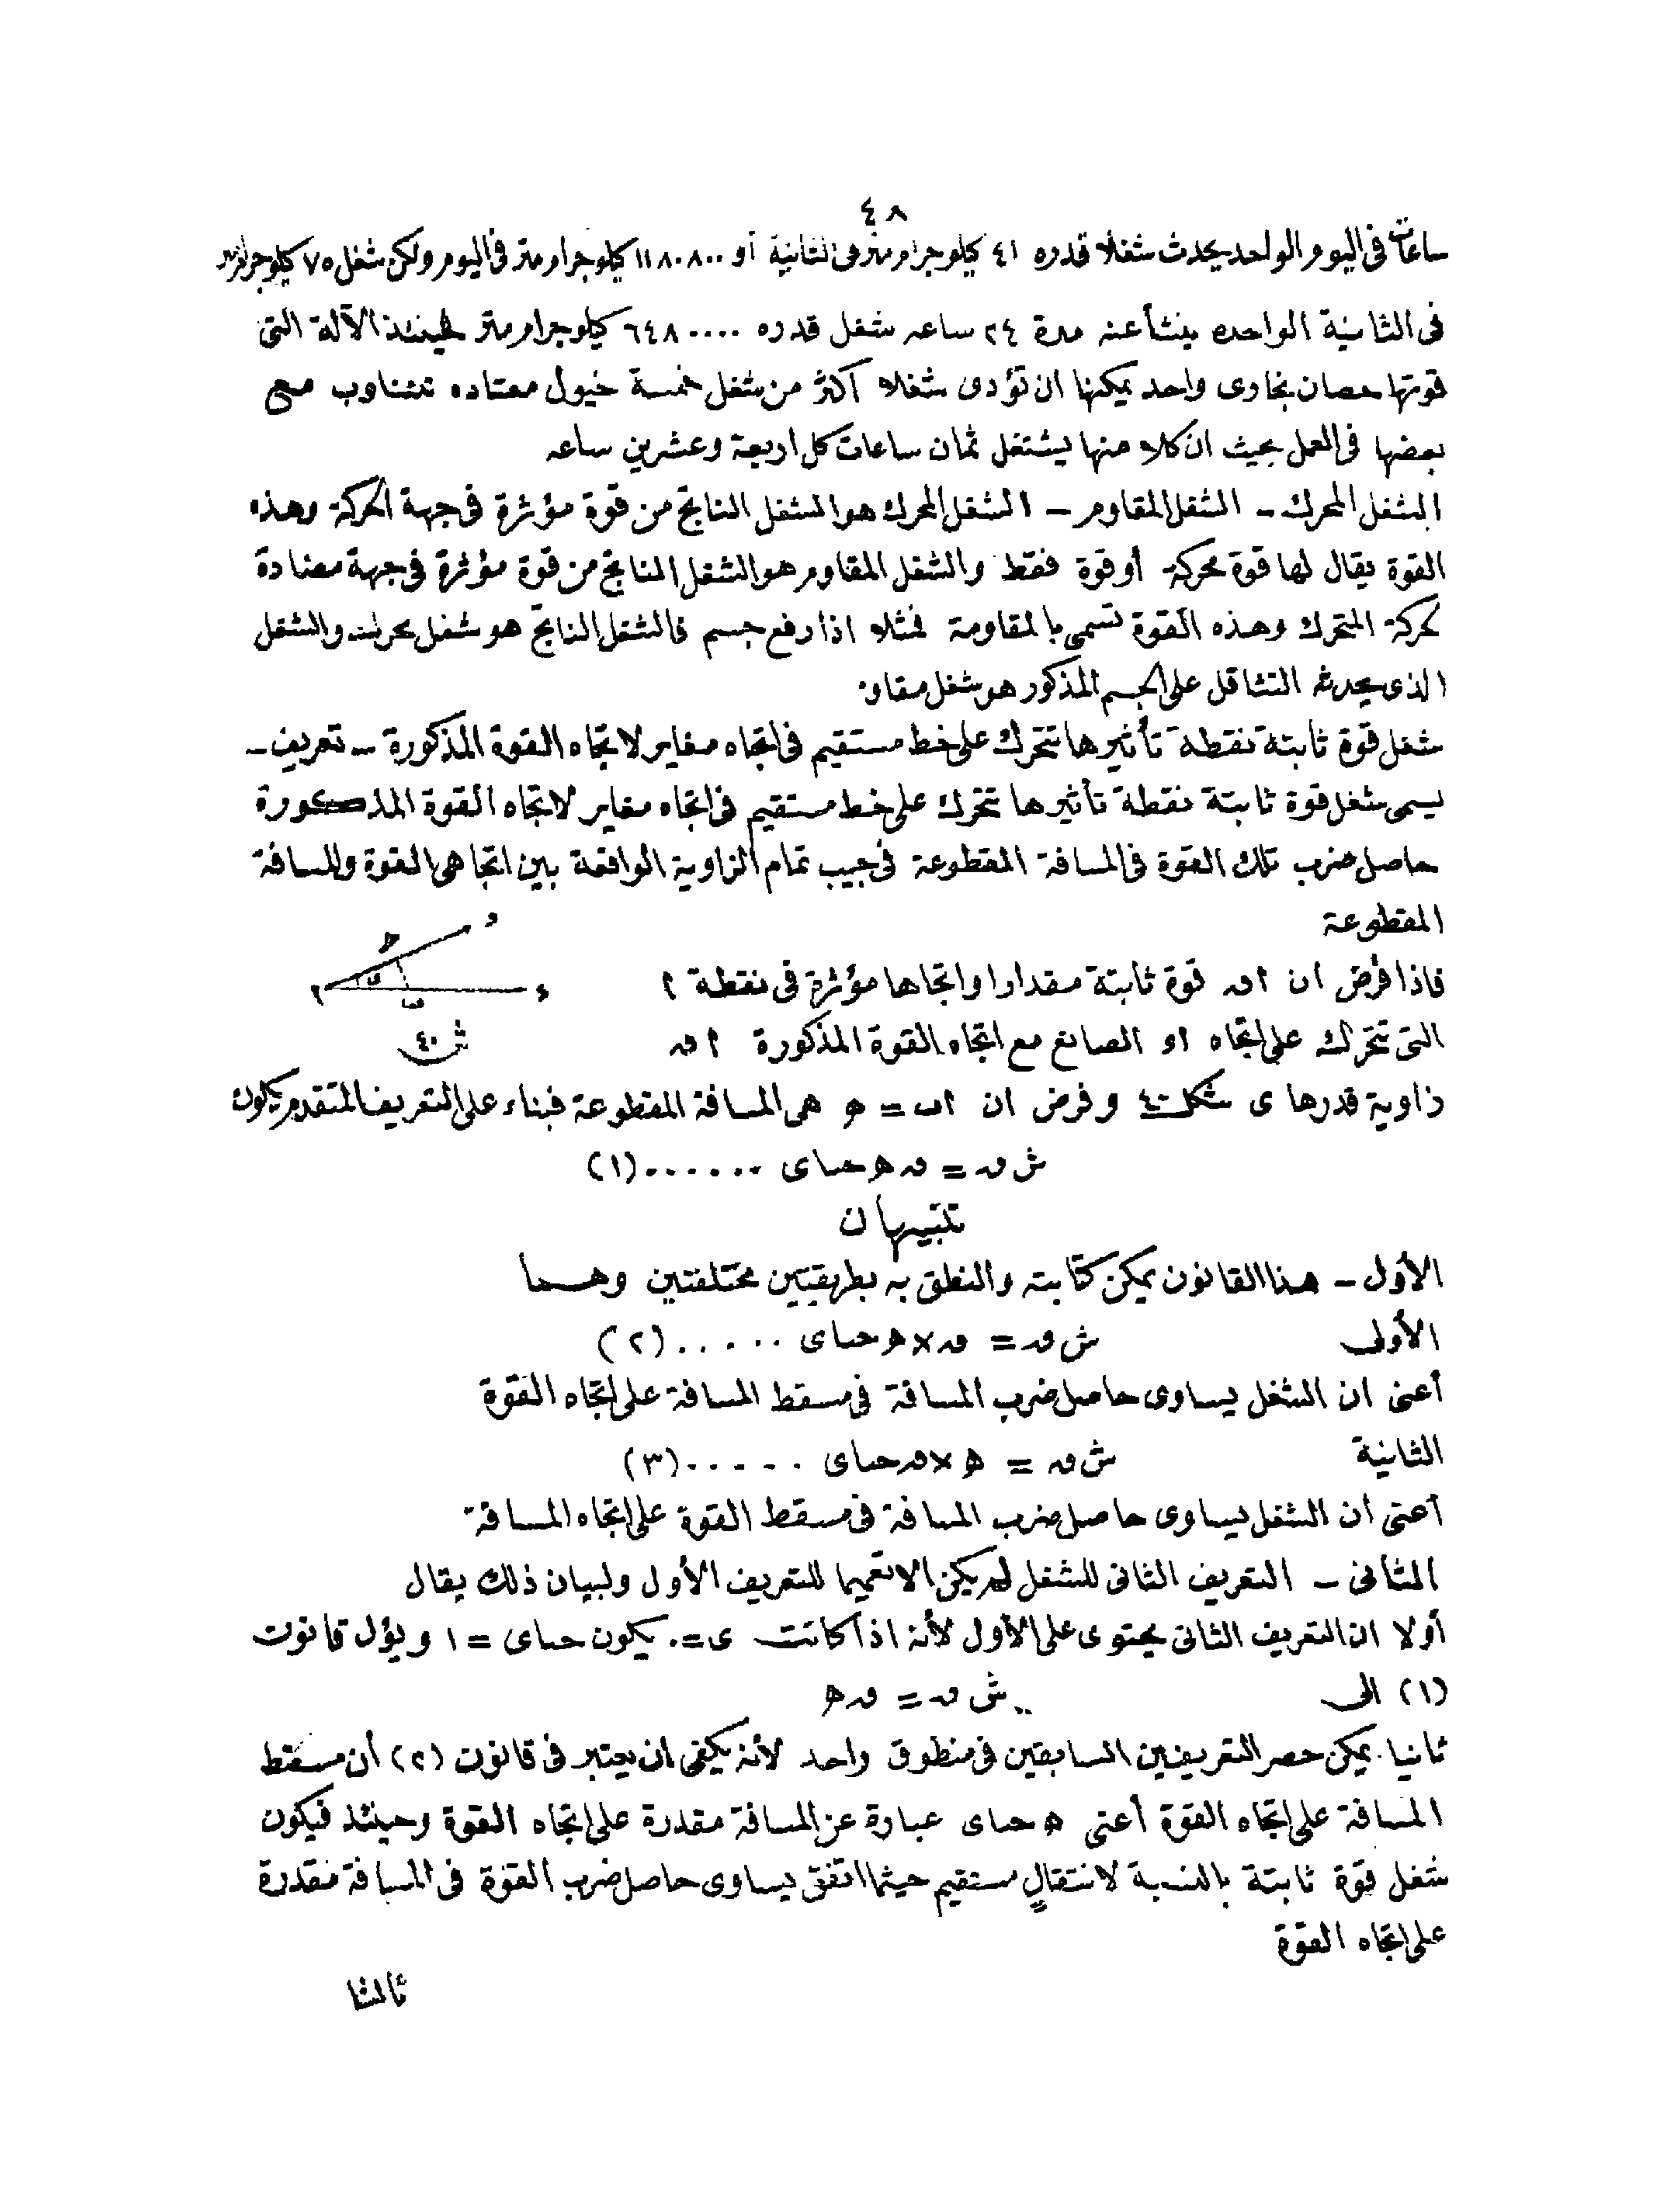 ٤٨
ساعات فى اليوم الواحد يحدث شغلا قدره ٤١ كيلوجرام متر فى الثانية أو ١١٨٠٨٠٠ كيلوجرام متر فى اليوم ولكن شغل ٧٥ كيلوجرام متر
فى الثانية الواحده ينشأ عنه مدة ٢٤ ساعه شغل قدره ٦٤٨٠٠٠٠ كيلوجرام متر فحينئذ الآلة التى
قوتها حصان بخارى واحد يمكنها ان تؤدى شغلا أكثر من شغل خمسة خيول معتاده تتناوب مع
بعضها فى العمل بحيث ان كلا منها يشتغل ثمان ساعات كل اربعة وعشرين ساعه
الشغل المحرك - الشغل المقاوم - الشغل المحرك هو الشغل الناتج من قوة مؤثرة فى جهة الحركة وهذه
القوة يقال لها قوة محركة أو قوة فقط والشغل المقاوم هو الشغل الناتج من قوة مؤثرة فى جهة مضادة
لحركة المتحرك وهذه القوة تسمى بالمقاومة فمثلا اذا رفع جسم فالشغل الناتج هو شغل محرك والشغل
الذى يحدثه التثاقل على الجسم المذكور هو شغل مقاوم
شغل قوة ثابتة نقطة تأثيرها تتحرك على خط مستقيم فى اتجاه مغاير لاتجاه القوة المذكورة - تعريف -
يسمى شغل قوة ثابتة نقطة تأثيرها تتحرك على خط مستقيم فى اتجاه مغاير لاتجاه القوة المذكورة
حاصل ضرب تلك القوة فى المسافة المقطوعة فى جيب تمام الزاوية الواقعة بين اتجاهى القوة والمسافة
المقطوعة
فاذا فرض ان ا ق قوة ثابتة مقدارا واتجاها مؤثرة فى نقطة ا
التى تتحرك على اتجاه ا و الصانع مع اتجاه القوة المذكورة ا ق
شكل ٤٠
زاوية قدرها ى شكل ٤٠ وفرض ان ا ب = ه هى المسافة المقطوعة فبناء على التعريف المتقدم يكون
ش ق = ق ه حتاى ......(١)
تنبيهان
الأول - هذا القانون يمكن كتابته والنطق به بطريقتين مختلفتين وهما
الأولى ش ق = ق × ه حتاى .....(٢)
أعنى ان الشغل يساوى حاصل ضرب المسافة فى مسقط المسافة على اتجاه القوة
الثانية ش ق = ه × ق حتاى .....(٣)
أعنى ان الشغل يساوى حاصل ضرب المسافة فى مسقط القوة على اتجاه المسافة
الثانى - التعريف الثانى للشغل لم يكن الا تعميما للتعريف الأول ولبيان ذلك يقال
أولا ان التعريف الثانى يحتوى على الأول لأنه اذا كانت ى = ٠ يكون حتاى = ١ ويؤل قانون
(١) الى ش ق = ق ه
ثانيا يمكن حصر التعريفين السابقين فى منطوق واحد لأنه يكفى ان يعتبر فى قانون (٢) أن مسقط
المسافة على اتجاه القوة أعنى ه حتاى عبارة عن المسافة مقدرة على اتجاه القوة وحينئذ فيكون
شغل قوة ثابتة بالنسبة لانتقال مستقيم حيثما اتفق يساوى حاصل ضرب القوة فى المسافة مقدرة
على اتجاه القوة
ثالثا